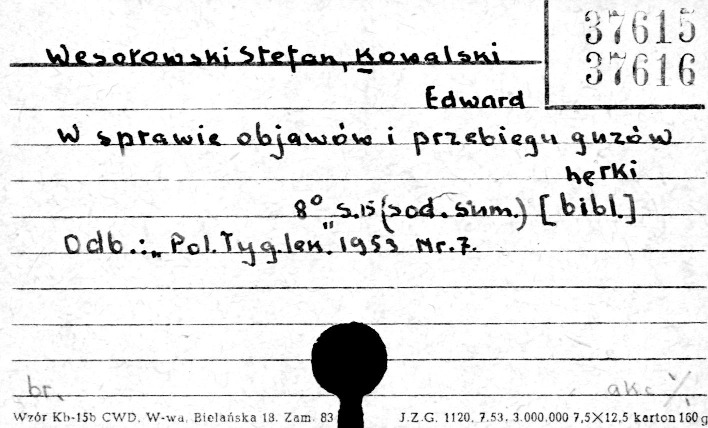 37615
37616
Wesołowski Stefan, Kowalski
Edward
W sprawie objawów i przebiegu guzów
nerki
8° s.15 (rod. sum.) [bibl.]
Odb.: „Pol.Tyg.lek." 1953 Nr.7.
br.
akc 1/1
Wzór Kb-15b CWD, W-wa, Bielańska 18. Zam. 83
J.Z.G. 1120, 7.53, 3.000,000 7,5×12,5 karton 160 g